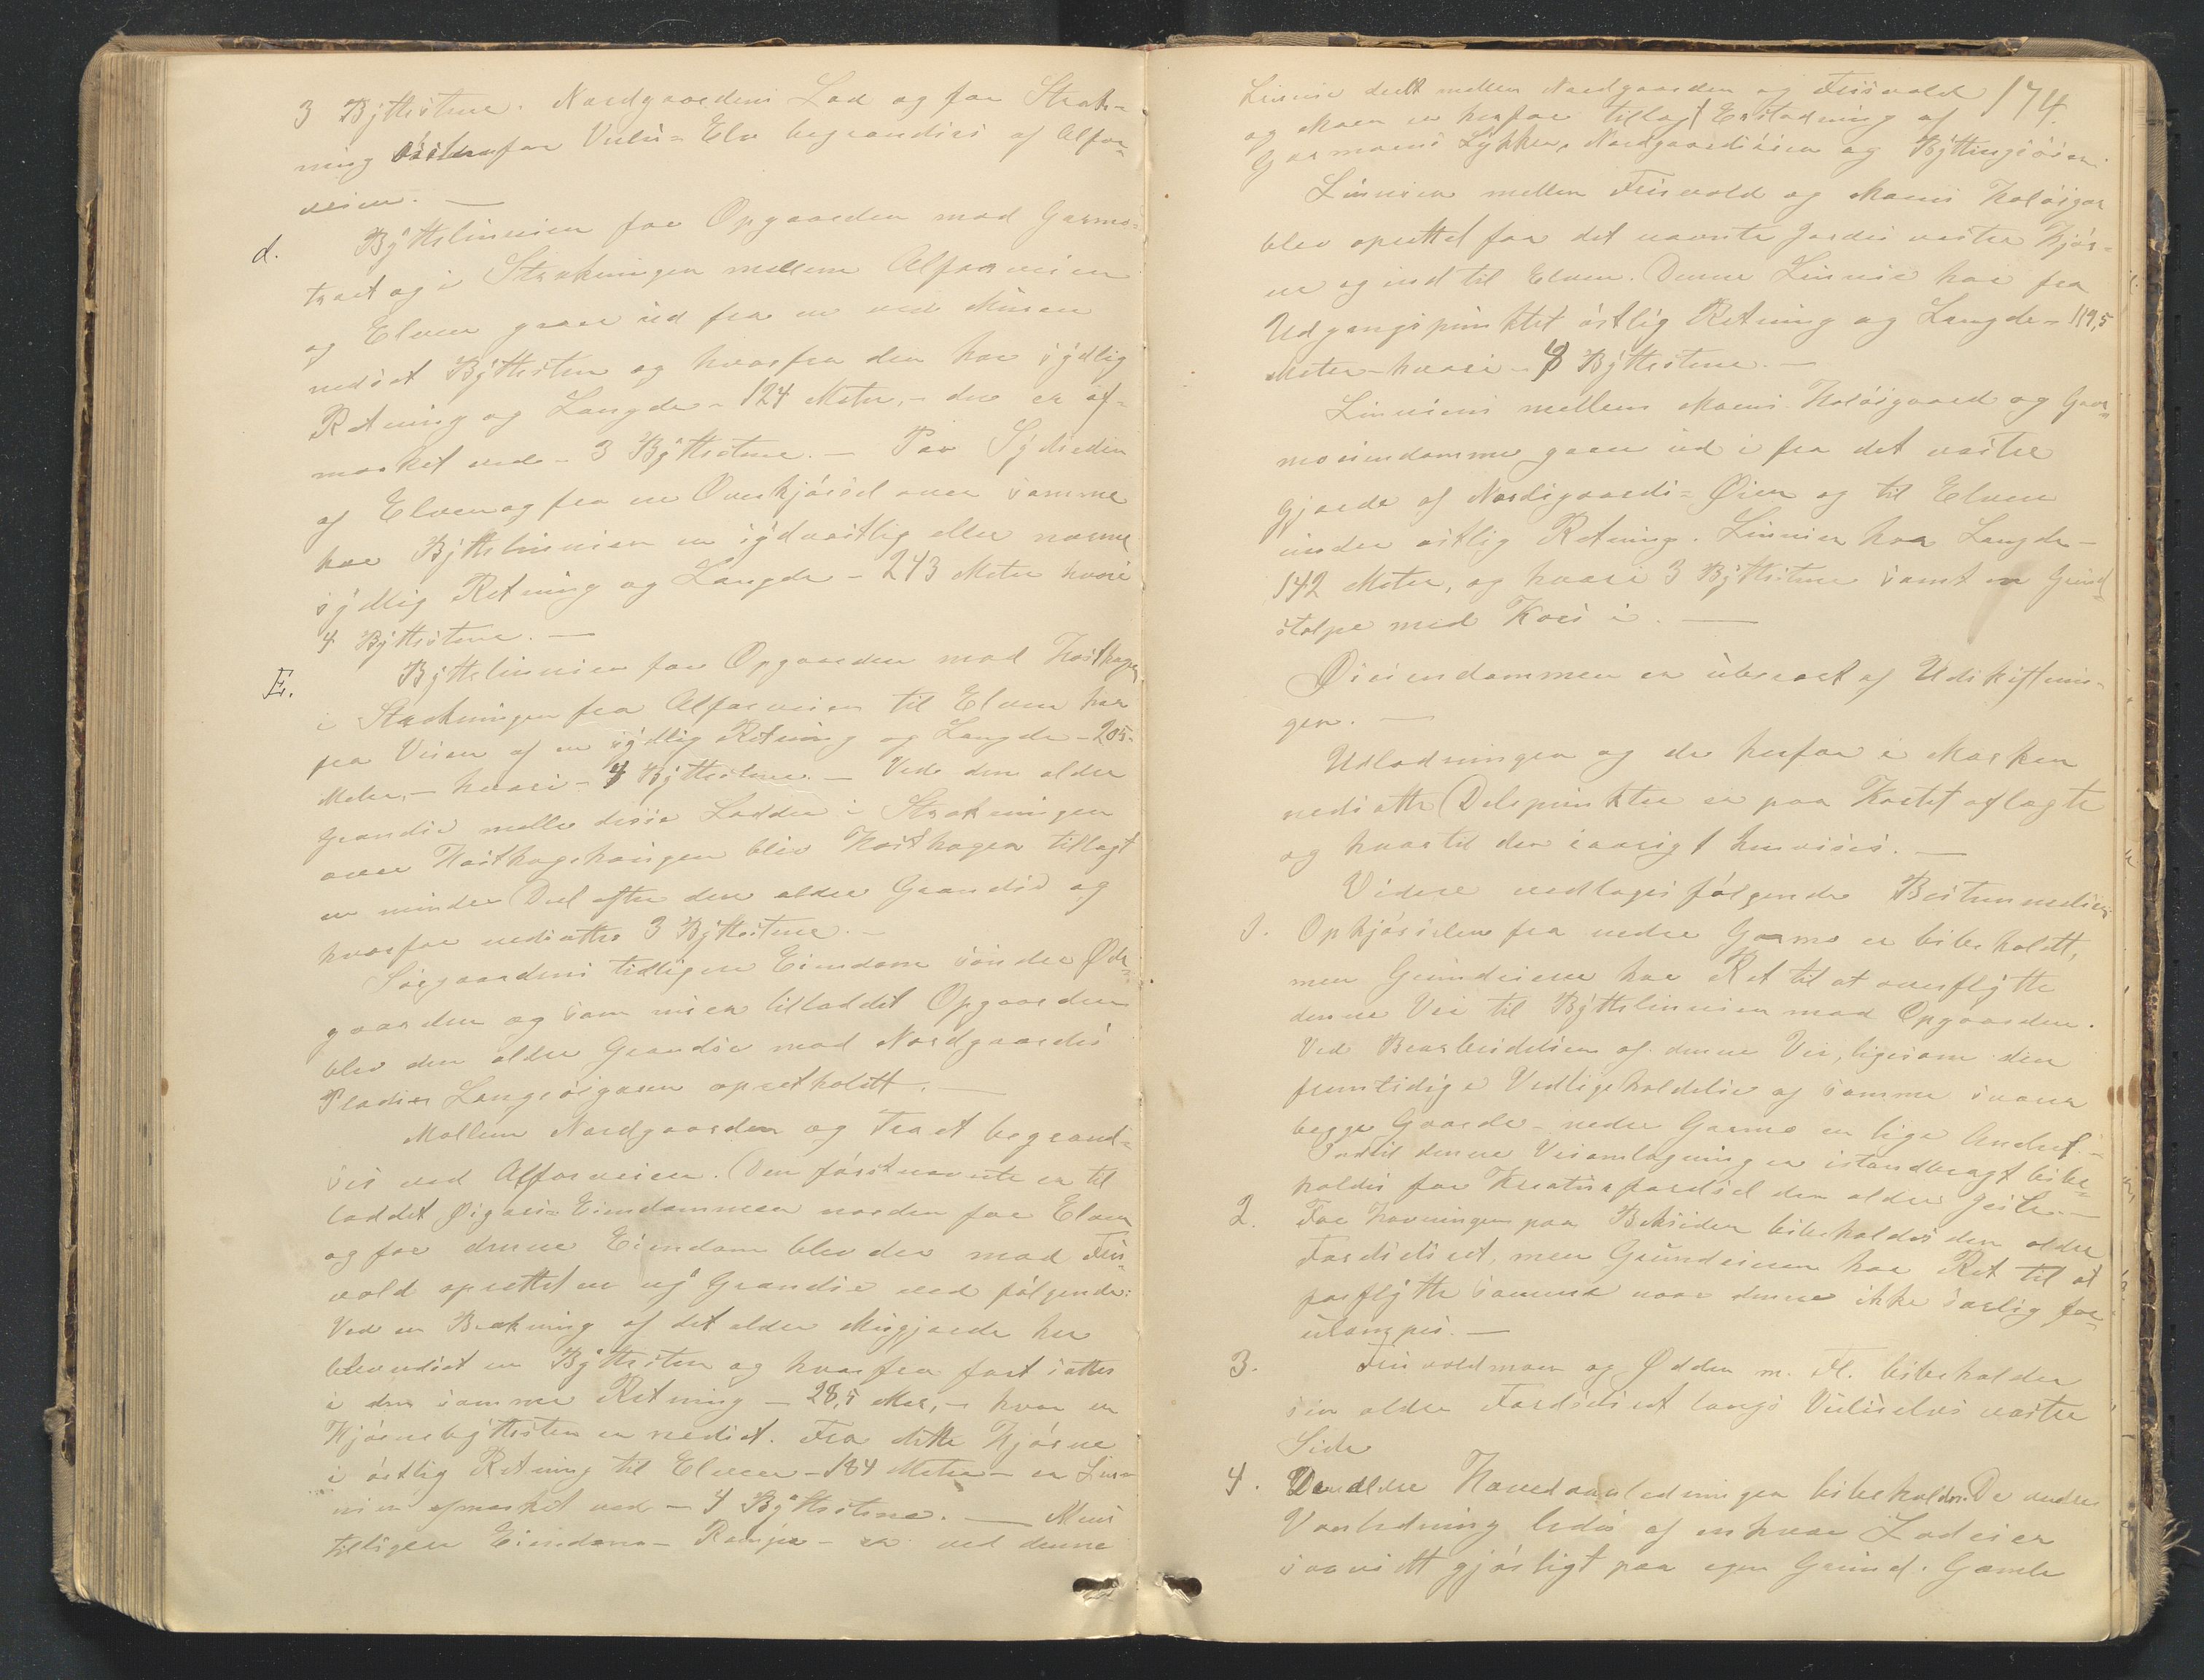 3 Byttestene. Nordgaardens Lod og for Stræk-
ning østenfor Vulu-Elv begrændses af Alfar-
veien. —
d. Byttelinnien for Opgaarden mod Garmo-
træet og i Strækningen mellem Alfarveien
og Elven gaaer ud fra en ved Muren
nedsat Byttesten og hvorfra den har sydlig
Retning og Længde - 124 Meter, - den er af-
mærket ved - 3 Byttestene. — Paa Sydsiden
af Elven og fra en Overkjørsel over samme
har Byttelinnien en sydvestlig eller nærme
sydlig Retning og Længde - 243 Meter hvori
4 Byttestene. —
E. Byttelinnien for Opgaarden mod Hosthagen
i Strækningen fra Alfarveien til Elven har
fra Veien af en sydlig Retning og Længde - 205
Meter, - hvori - 4 Byttestene. — Ved den ældre
Grændse melle disse Lodder i Strækningen
over Hosthagehaugen blev Hosthagen tillagt
en mindre Deel efter den ældre Grændse og
hvorfor nedsattes 3 Byttestene. —
Sørgaardens tidligere Eiendom søndre Øde-
gaarden og som nu er tilloddet Opgaarden
blev den ældre Grændse mod Nordgaardes
Pladsen Langsøigaren opretholdt. —
Mellem Nordgaarden og Træet begrænd-
ses ved Alfarveien. Den førstnævnte er til
loddet Øigars Eiendommen norden for Elven
og for denne Eiendom blev der mod Friis-
vold oprettet en ny Grændse ved følgende:
Ved en Brækning af det ældre Skigjærde her
blev nedsat en Byttesten og hvorfra fortsattes
i den samme Retning - 28,5 Met, - hvor en
Hjørnebyttesten er nedsat. Fra dette Hjørne
i østlig Retning til Elven - 184 Meter - er Lin-
nien afmærket ved - 4 Byttestene. — Moens
tidligere Eiendom - - er ved denne
174.
Linnie deelt mellem Nordgaarden og Friisvold
og Moen er herfor tillagt Erstadning af
Garmoens Løkken, Nordgaardsøien og Byttingsøien.
Linnien mellem Friisvold og Moens Holøigar
blev oprettet fra det nævnte Jordes vestre Hjør-
ne og ind til Elven. Denne Linnie har fra
Udgangspunktet østlig Retning og Længde - 119,5
Meter - hvori - 8 Byttestene. —
Linniens mellem Moens Holøigaard og Gar-
moeiendomme gaaer ud i fra det vestre
Gjærde af Nordigaards-Øien og til Elven
under østlig Retning. Linnien har Længde -
142 Meter, og hvori 3 Byttestene samt en Grind
stolpe med Kors i. —
Øieiendommen er uberørt af Udskiftnin-
gen. —
Udlodningen og de herfor i Marken
nedsatte Delepunkter er paa Kartet aflagte
og hvortil der iøvrigt henvises. —
Videre vedtages følgende Bestemmelser:
1. Opkjørselen fra nedre Garmo er bibeholdt,
men Grundeieren har Ret til at overflytte
denne Vei til Byttelinnien mod Opgaarden.
Ved Bearbeidelsen af denne Vei, ligesom den
fremtidige Vedligeholdelse af samme svarer
begge Gaarde - nedre Garmo en lige Andeel. —
Indtil denne Veiomlægning er istandbragt bibe-
holdes for Kreaturfærdsel den ældre Geile. —
2. For Havningen paa Baksiden bibeholdes den ældre
Færdselsret, men Grundeieren har Ret til at
forflytte samme naar denne ikke særlig for-
ulempes. —
3. Friisvoldmoen og Ødden m. Fl. bibeholder
sin ældre Færdselsret langs Vuluelvs vestre
Side
4. De ældre Hovedvanledninger bibeholdes. De andre
Vanledning ledes af enhver Lodeier
saavidt gjørligt paa egen Grund. Gamle